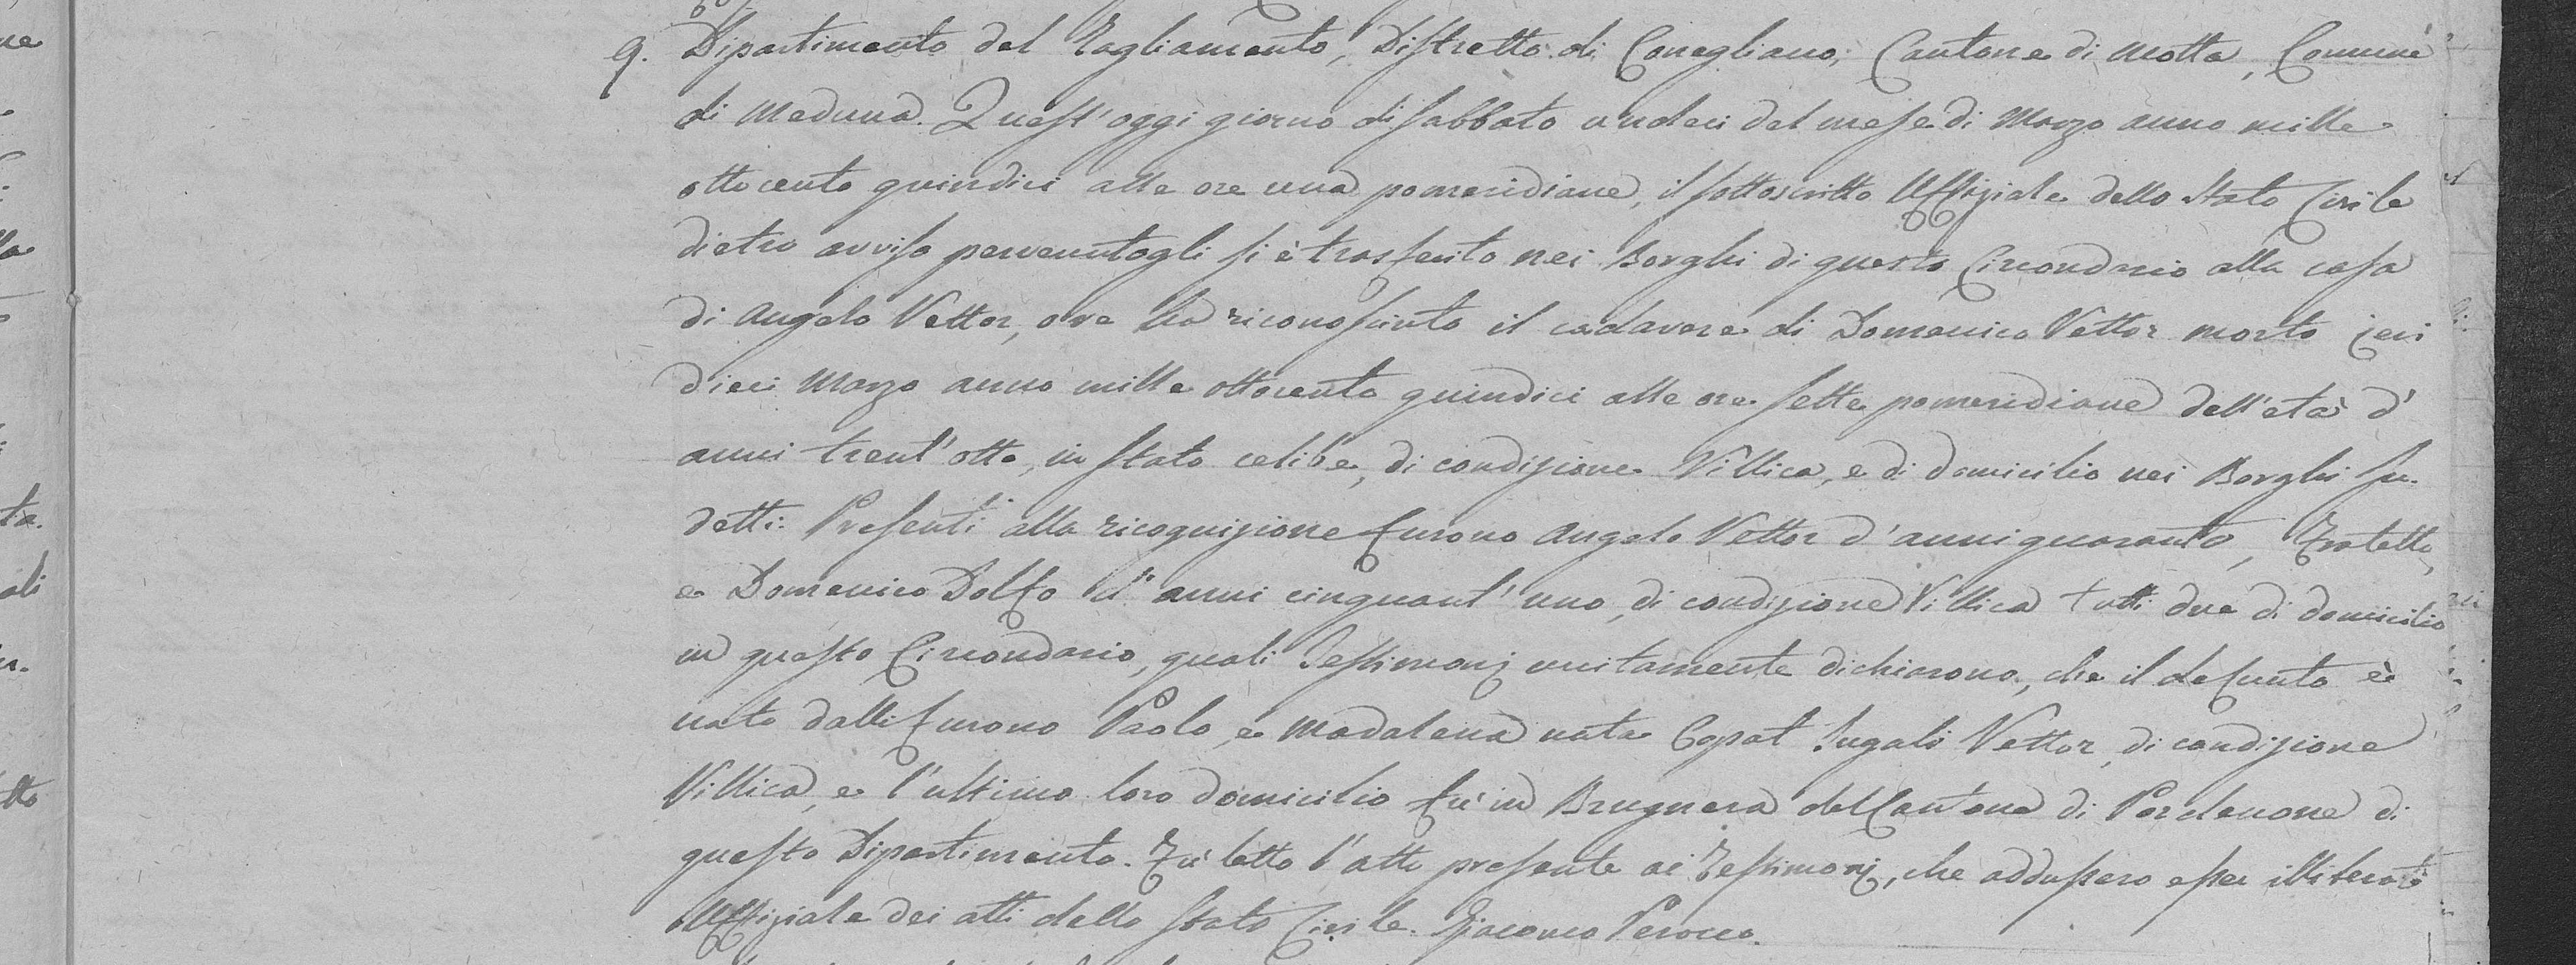 9. Dipartimento del Tagliamento, Distretto di Conegliano, Cantone di Motta, Comune
di Meduna. Quest'oggi giorno di Sabbato undeci del mese di Marzo anno mille
ottocento quindici alle ore una pomeridiane, il sottoscritto Uffiziale dello Stato Civile
dietro avviso pervenutogli si è trasferito nei Borghi di questo Circondario alla casa
di Angelo Vettor, ove ha riconosciuto il cadavere di Domenico Vettor morto jeri
dieci Marzo anno mille ottocento quindici alle ore sette pomeridiane dell'età d'
anni trent'otto, in stato celibe, di condizione Villica, e di domicilio nei Borghi su-
detti. Presenti alla ricognizione furono Angelo Vettor d'anni quaranta, Fratello,
e Domenico Dolfo d'anni cinquant'uno, di condizione Villica tutti due di domicilio
in questo Circondario, quali Testimonj unitamente dichiarono, che il defunto è
nato dalli furono Paolo, e Madalena nata Copat Jugali Vettor, di condizione
Villica, e l'ultimo loro domicilio fu in Brugnera del Cantone di Pordenone di
questo Dipartimento. Fu letto l'atto presente ai Testimonj, che addussero esser illiterati
Uffiziale dei atti dello Stato Civile Giacomo Perocco.